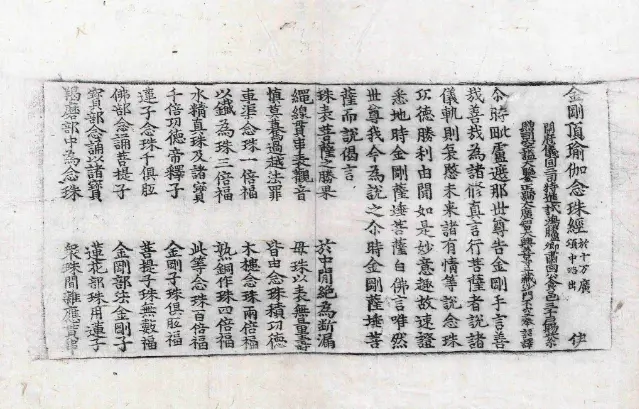 金剛頂瑜伽念珠經 於十万廣頌中略出 伕
開府儀同三司特進試鴻臚卿肅國公食邑三千戶賜紫
贈司空謚大鑒正號大廣智大興善寺三藏沙門不空奉 詔譯
尒時毗盧遮那世尊告金剛手言善
哉善哉為諸修真言行菩薩者說諸
儀軌則哀愍未來諸有情等說念珠
功德勝利由聞如是妙意趣故速證
悉地時金剛薩埵菩薩白佛言唯然
世尊我今為說之尒時金剛薩埵菩
薩而說偈言
珠表菩薩之勝果 於中間絕為斷漏
繩線貫串表觀音 母珠以表無量壽
慎莫驀過越法罪 皆由念珠積功德
車渠念珠一倍福 木槵念珠兩倍福
以鐵為珠三倍福 熟銅作珠四倍福
水精真珠及諸寶 此等念珠百倍福
千倍功德帝釋子 金剛子珠俱胝福
蓮子念珠千俱胝 菩提子珠無數福
佛部念誦菩提子 金剛部法金剛子
寶部念誦以諸寶 蓮花部珠用蓮子
羯磨部中為念珠 衆珠間雜應貫串